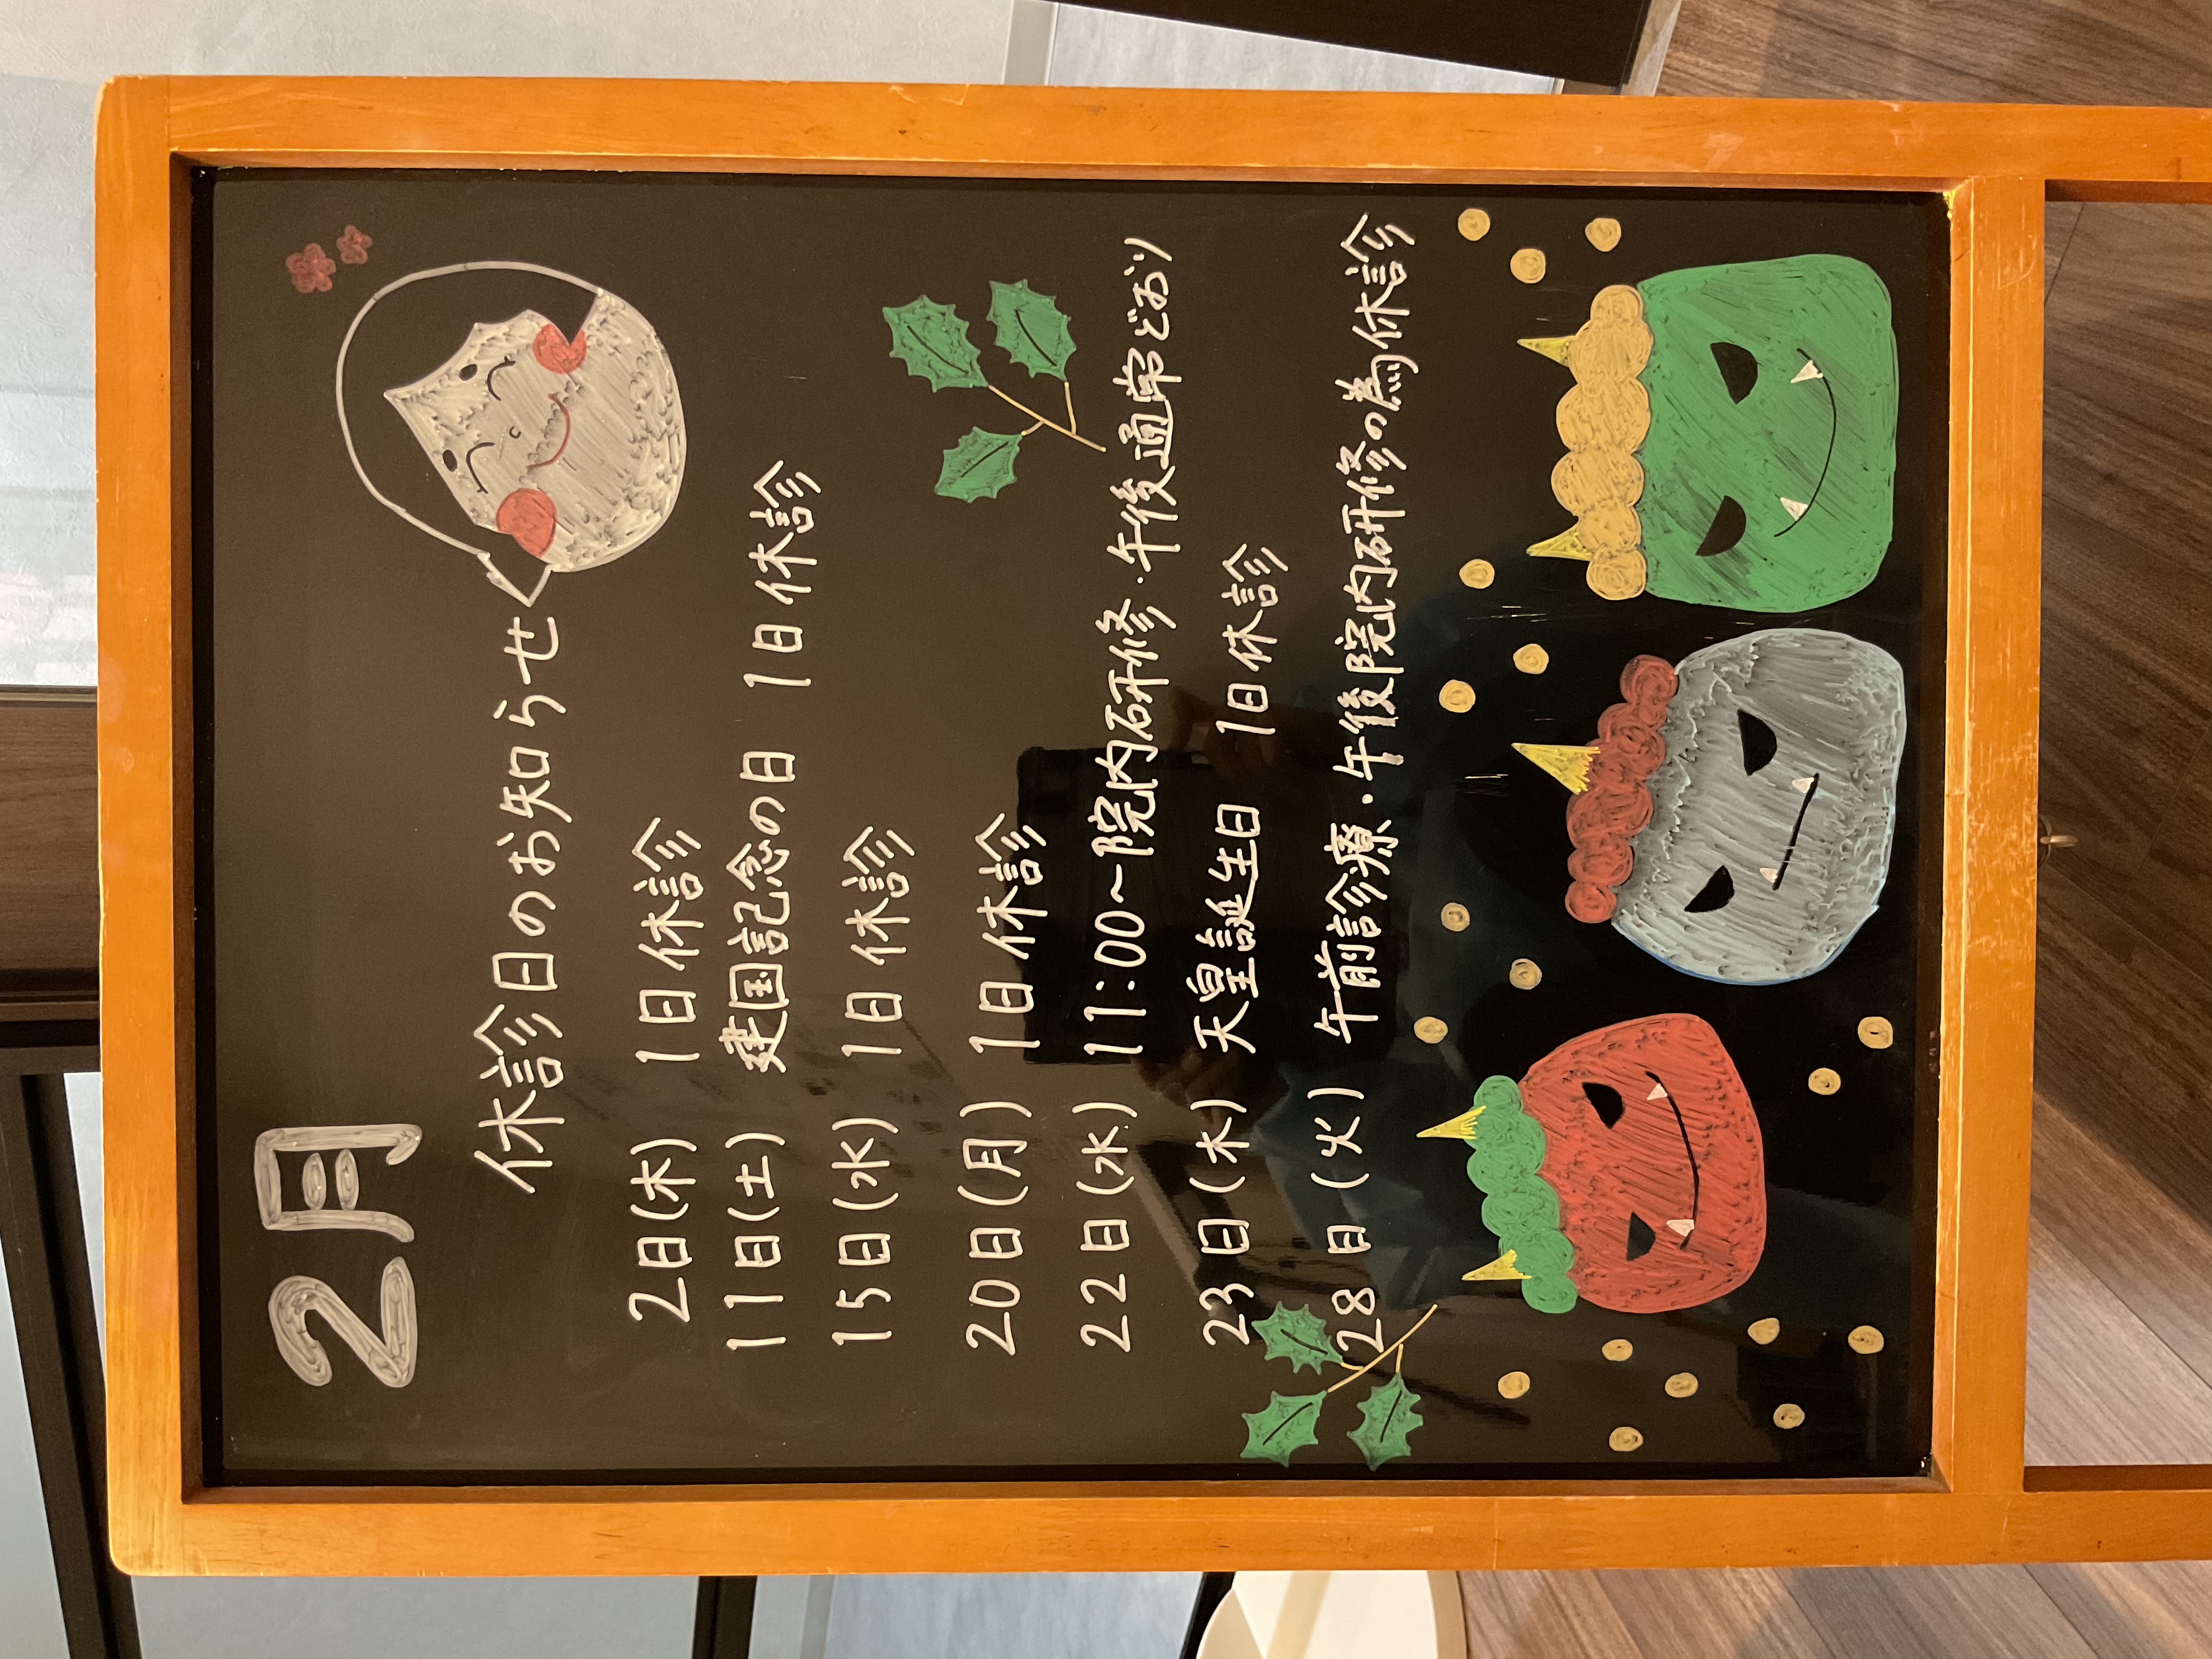 2月
休診日のお知らせ
2日(木) 1日休診
11日(土) 建国記念の日 1日休診
15日(水) 1日休診
20日(月) 1日休診
22日(水) 11:00~院内研修・午後通常どおり
23日(木) 天皇誕生日 1日休診
28日(火) 午前診療・午後院内研修の為休診